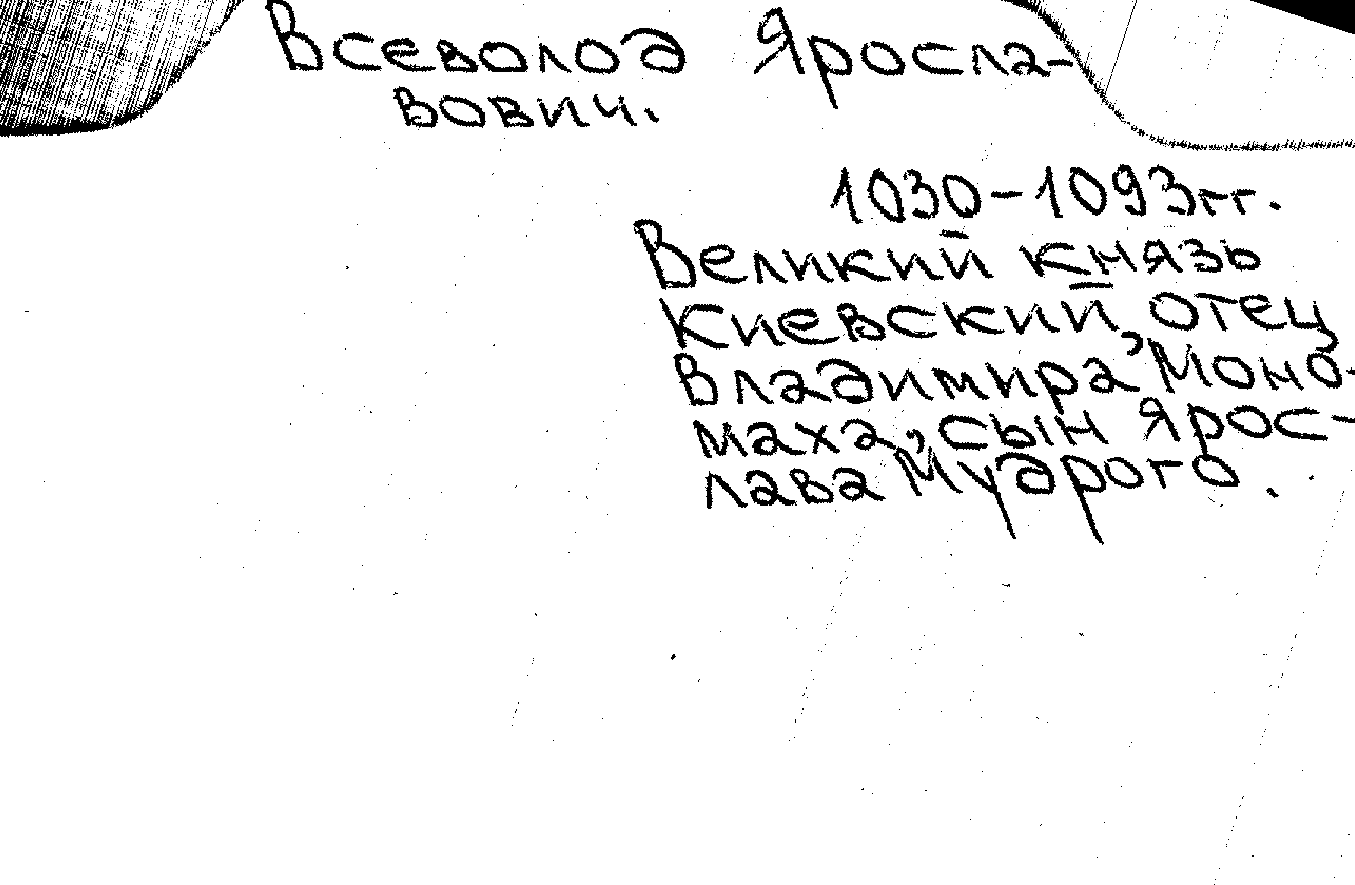 Всеволод Яросла-
вович.
1030-1093гг.
Великий князь
Киевский, отец
Владимира Моно-
маха, сын Ярос-
лава Мудрого.